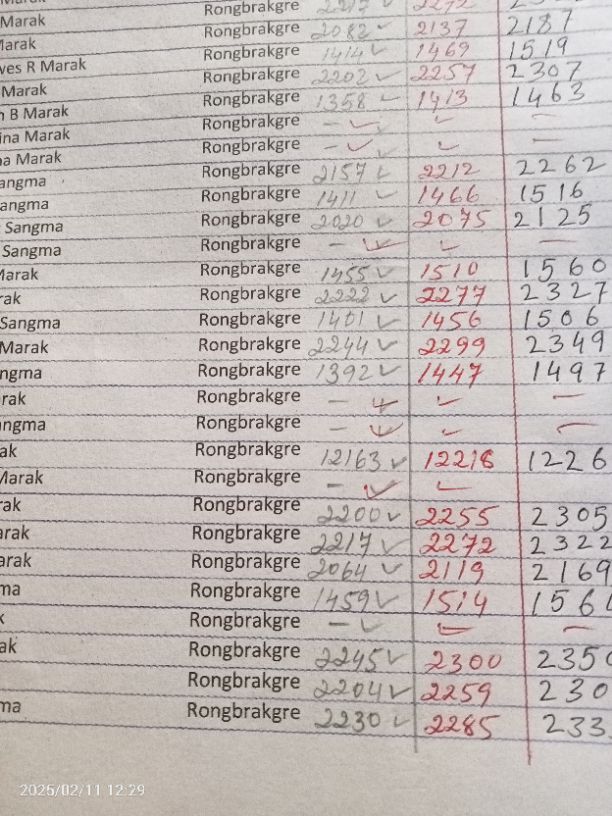 Marak Rongbrakgre 2082 ✓ 2137 2187
Marak Rongbrakgre 1414 ✓ 1469 1519
ves R Marak Rongbrakgre 2202 ✓ 2257 2307
Marak Rongbrakgre 1358 ✓ 1413 1463
B Marak Rongbrakgre – ✓ ✓ –
ina Marak Rongbrakgre – ✓ ✓ –
a Marak Rongbrakgre 2157 ✓ 2212 2262
angma Rongbrakgre 1411 ✓ 1466 1516
angma Rongbrakgre 2020 ✓ 2075 2125
Sangma Rongbrakgre – ✓ ✓ –
Sangma Rongbrakgre 1455 ✓ 1510 1560
Marak Rongbrakgre 2222 ✓ 2277 2327
rak Rongbrakgre 1401 ✓ 1456 1506
Sangma Rongbrakgre 2244 ✓ 2299 2349
Marak Rongbrakgre 1392 ✓ 1447 1497
ngma Rongbrakgre – ✓ ✓ –
rak Rongbrakgre – ✓ ✓ –
ngma Rongbrakgre 12163 ✓ 12218 1226
ak Rongbrakgre – ✓ ✓
Marak Rongbrakgre 2200 ✓ 2255 2305
rak Rongbrakgre 2217 ✓ 2272 2322
arak Rongbrakgre 2064 ✓ 2119 2169
arak Rongbrakgre 1459 ✓ 1514 156
ma Rongbrakgre – ✓ ✓ –
k Rongbrakgre 2245 ✓ 2300 235
ak Rongbrakgre 2204 ✓ 2259 230
ma Rongbrakgre 2230 ✓ 2285 233
2025/02/11 12:29